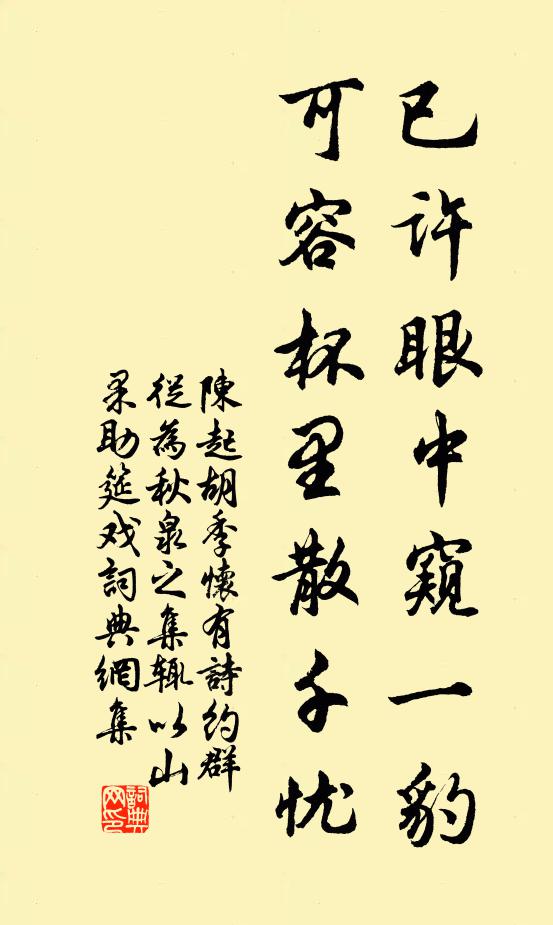 已许眼中窥一豹
可容杯里散千忧
陳起胡季懷有詩約群
從為秋泉之集辄以山
果助筵戏詞典網集
詞典网印